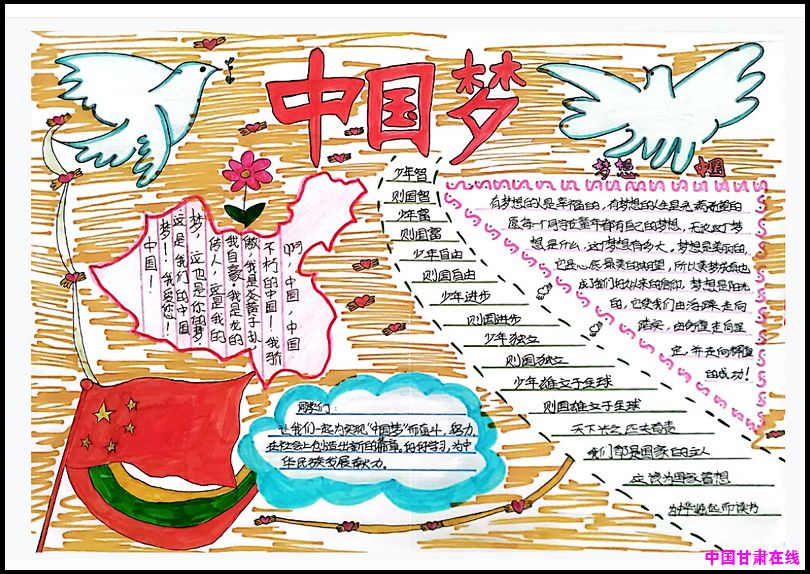 中国梦
梦想 中国
少年智
则国智
少年富
则国富
少年自由
则国自由
少年进步
则国进步
少年独立
则国独立
少年雄立于全球
则国雄立于全球
天下兴亡匹夫有责
我们都是国家的主人
应该为国家着想
为中华崛起而读书
有梦想的人是幸福的，有梦想的人生是充满希望的
愿每一个同学在童年都有自己的梦想，无论这个梦
想是什么，这个梦想有多大，梦想是美丽的，
它是心底最美的期望，所以美梦成真也
成了我们长久以来的信仰。梦想是阳光
的，它使我们由浮躁走向
踏实，由彷徨走向坚
定，并走向
的成功！
啊，中国，中国
不朽的中国！我骄
傲，我是炎黄子孙
我自豪，我是龙的
传人，这是我的
梦，这也是你的梦，
这是我们的中国
梦！我爱您！
中国！
同学们：
让我们一起为实现“中国梦”而奋斗，努力
在社会上创造出新的篇章。好好学习，为中
华民族发展献力。
中国甘肃在线